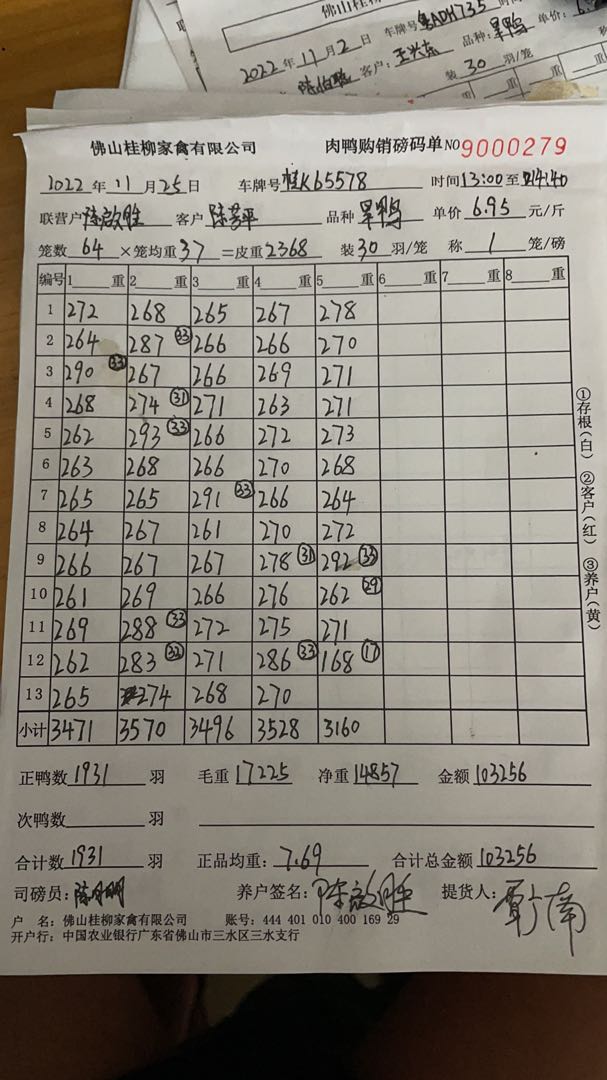 佛山桂柳
2022年11月2日 车牌号粤ADH735
陈伯聪 客户:王兴东 品种:旱鸭 单价:6.
装30羽/笼
重 重 重
佛山桂柳家禽有限公司 肉鸭购销磅码单NO9000279
2022年11月25日 车牌号桂K65578 时间13:00至14:40
联营户陈啟胜 客户陈芳平 品种旱鸭 单价6.95元/斤
笼数64×笼均重37=皮重2368 装30羽/笼 称1笼/磅
编号 1重 2重 3重 4重 5重 6重 7重 8重
1 272 268 265 267 278
2 264 287㉝ 266 266 270
3 290㉝ 267 266 269 271
4 268 274㉛ 271 263 271
5 262 293㉝ 266 272 273
6 263 268 266 270 268
7 265 265 291㉝ 266 264
8 264 267 261 270 272
9 266 267 267 278㉛ 292㉝
10 261 269 266 276 262㉙
11 269 288㉝ 272 275 271
12 262 283㉜ 271 286㉝ 168⑰
13 265 274 268 270
小计 3471 3570 3496 3528 3160
正鸭数1931羽 毛重17225 净重14857 金额103256
次鸭数 羽
合计数1931羽 正品均重:7.69 合计总金额103256
司磅员: 养户签名:陈啟胜 提货人:
户 名:佛山桂柳家禽有限公司 账号:444 401 010 400 169 29
开户行:中国农业银行广东省佛山市三水区三水支行
①存根(白) ②客户(红) ③养户(黄)